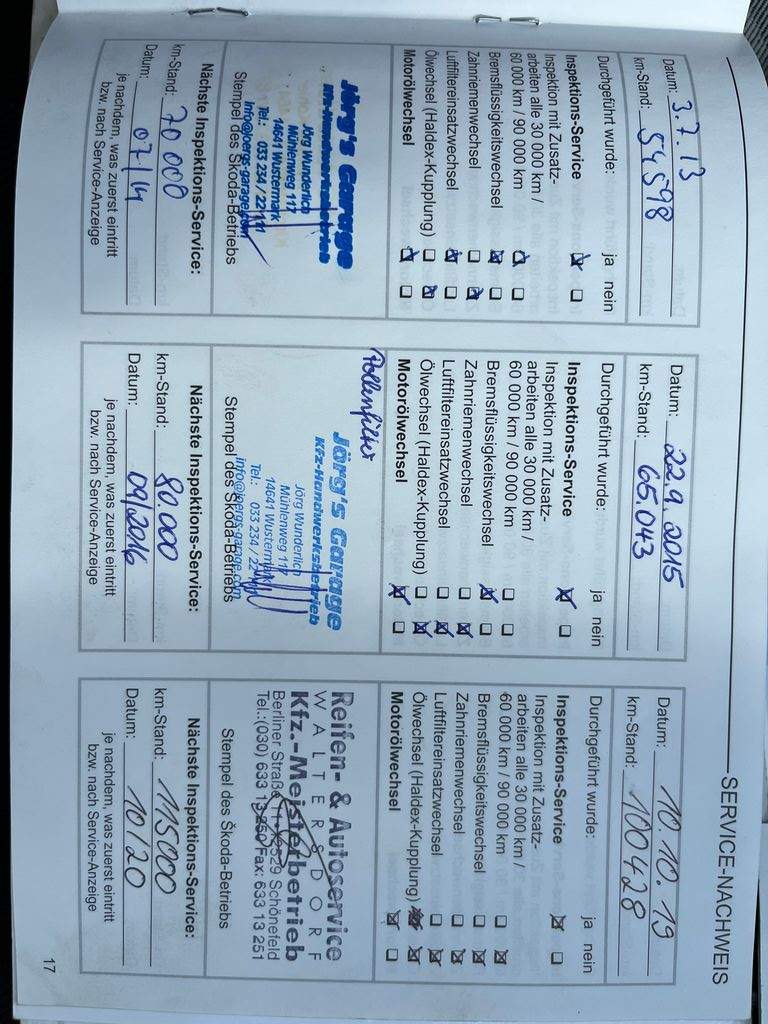 SERVICE-NACHWEIS
Datum: 3.7.13
km-Stand: 54598
Durchgeführt wurde: ja nein
Inspektions-Service
Inspektion mit Zusatz-
arbeiten alle 30 000 km /
60 000 km / 90 000 km
Bremsflüssigkeitswechsel
Zahnriemenwechsel
Luftfiltereinsatzwechsel
Ölwechsel (Haldex-Kupplung)
Motorölwechsel
Jörg's Garage
Kfz-Handwerksbetrieb
Jörg Wunderlich
Mühlenweg 117
14641 Wustermark
Tel.: 033 234 / 22111
info@joergs-garage.com
Stempel des Škoda-Betriebs
Nächste Inspektions-Service:
km-Stand: 70 000
Datum: 07/14
je nachdem, was zuerst eintritt
bzw. nach Service-Anzeige
Datum: 22.9.2015
km-Stand: 65.043
Durchgeführt wurde: ja nein
Inspektions-Service
Inspektion mit Zusatz-
arbeiten alle 30 000 km /
60 000 km / 90 000 km
Bremsflüssigkeitswechsel
Zahnriemenwechsel
Luftfiltereinsatzwechsel
Ölwechsel (Haldex-Kupplung)
Motorölwechsel
Pollenfilter
Jörg's Garage
Kfz-Handwerksbetrieb
Jörg Wunderlich
Mühlenweg 117
14641 Wustermark
Tel.: 033 234 / 22111
info@joergs-garage.com
Stempel des Škoda-Betriebs
Nächste Inspektions-Service:
km-Stand: 80.000
Datum: 09/2016
je nachdem, was zuerst eintritt
bzw. nach Service-Anzeige
Datum: 10.10.19
km-Stand: 100428
Durchgeführt wurde: ja nein
Inspektions-Service
Inspektion mit Zusatz-
arbeiten alle 30 000 km /
60 000 km / 90 000 km
Bremsflüssigkeitswechsel
Zahnriemenwechsel
Luftfiltereinsatzwechsel
Ölwechsel (Haldex-Kupplung)
Motorölwechsel
Reifen- & Autoservice
WALTERSDORF
Kfz.-Meisterbetrieb
Berliner Straße 11 · 12529 Schönefeld
Tel.:(030) 633 13 250 Fax: 633 13 251
Stempel des Škoda-Betriebs
Nächste Inspektions-Service:
km-Stand: 115000
Datum: 10/20
je nachdem, was zuerst eintritt
bzw. nach Service-Anzeige
17